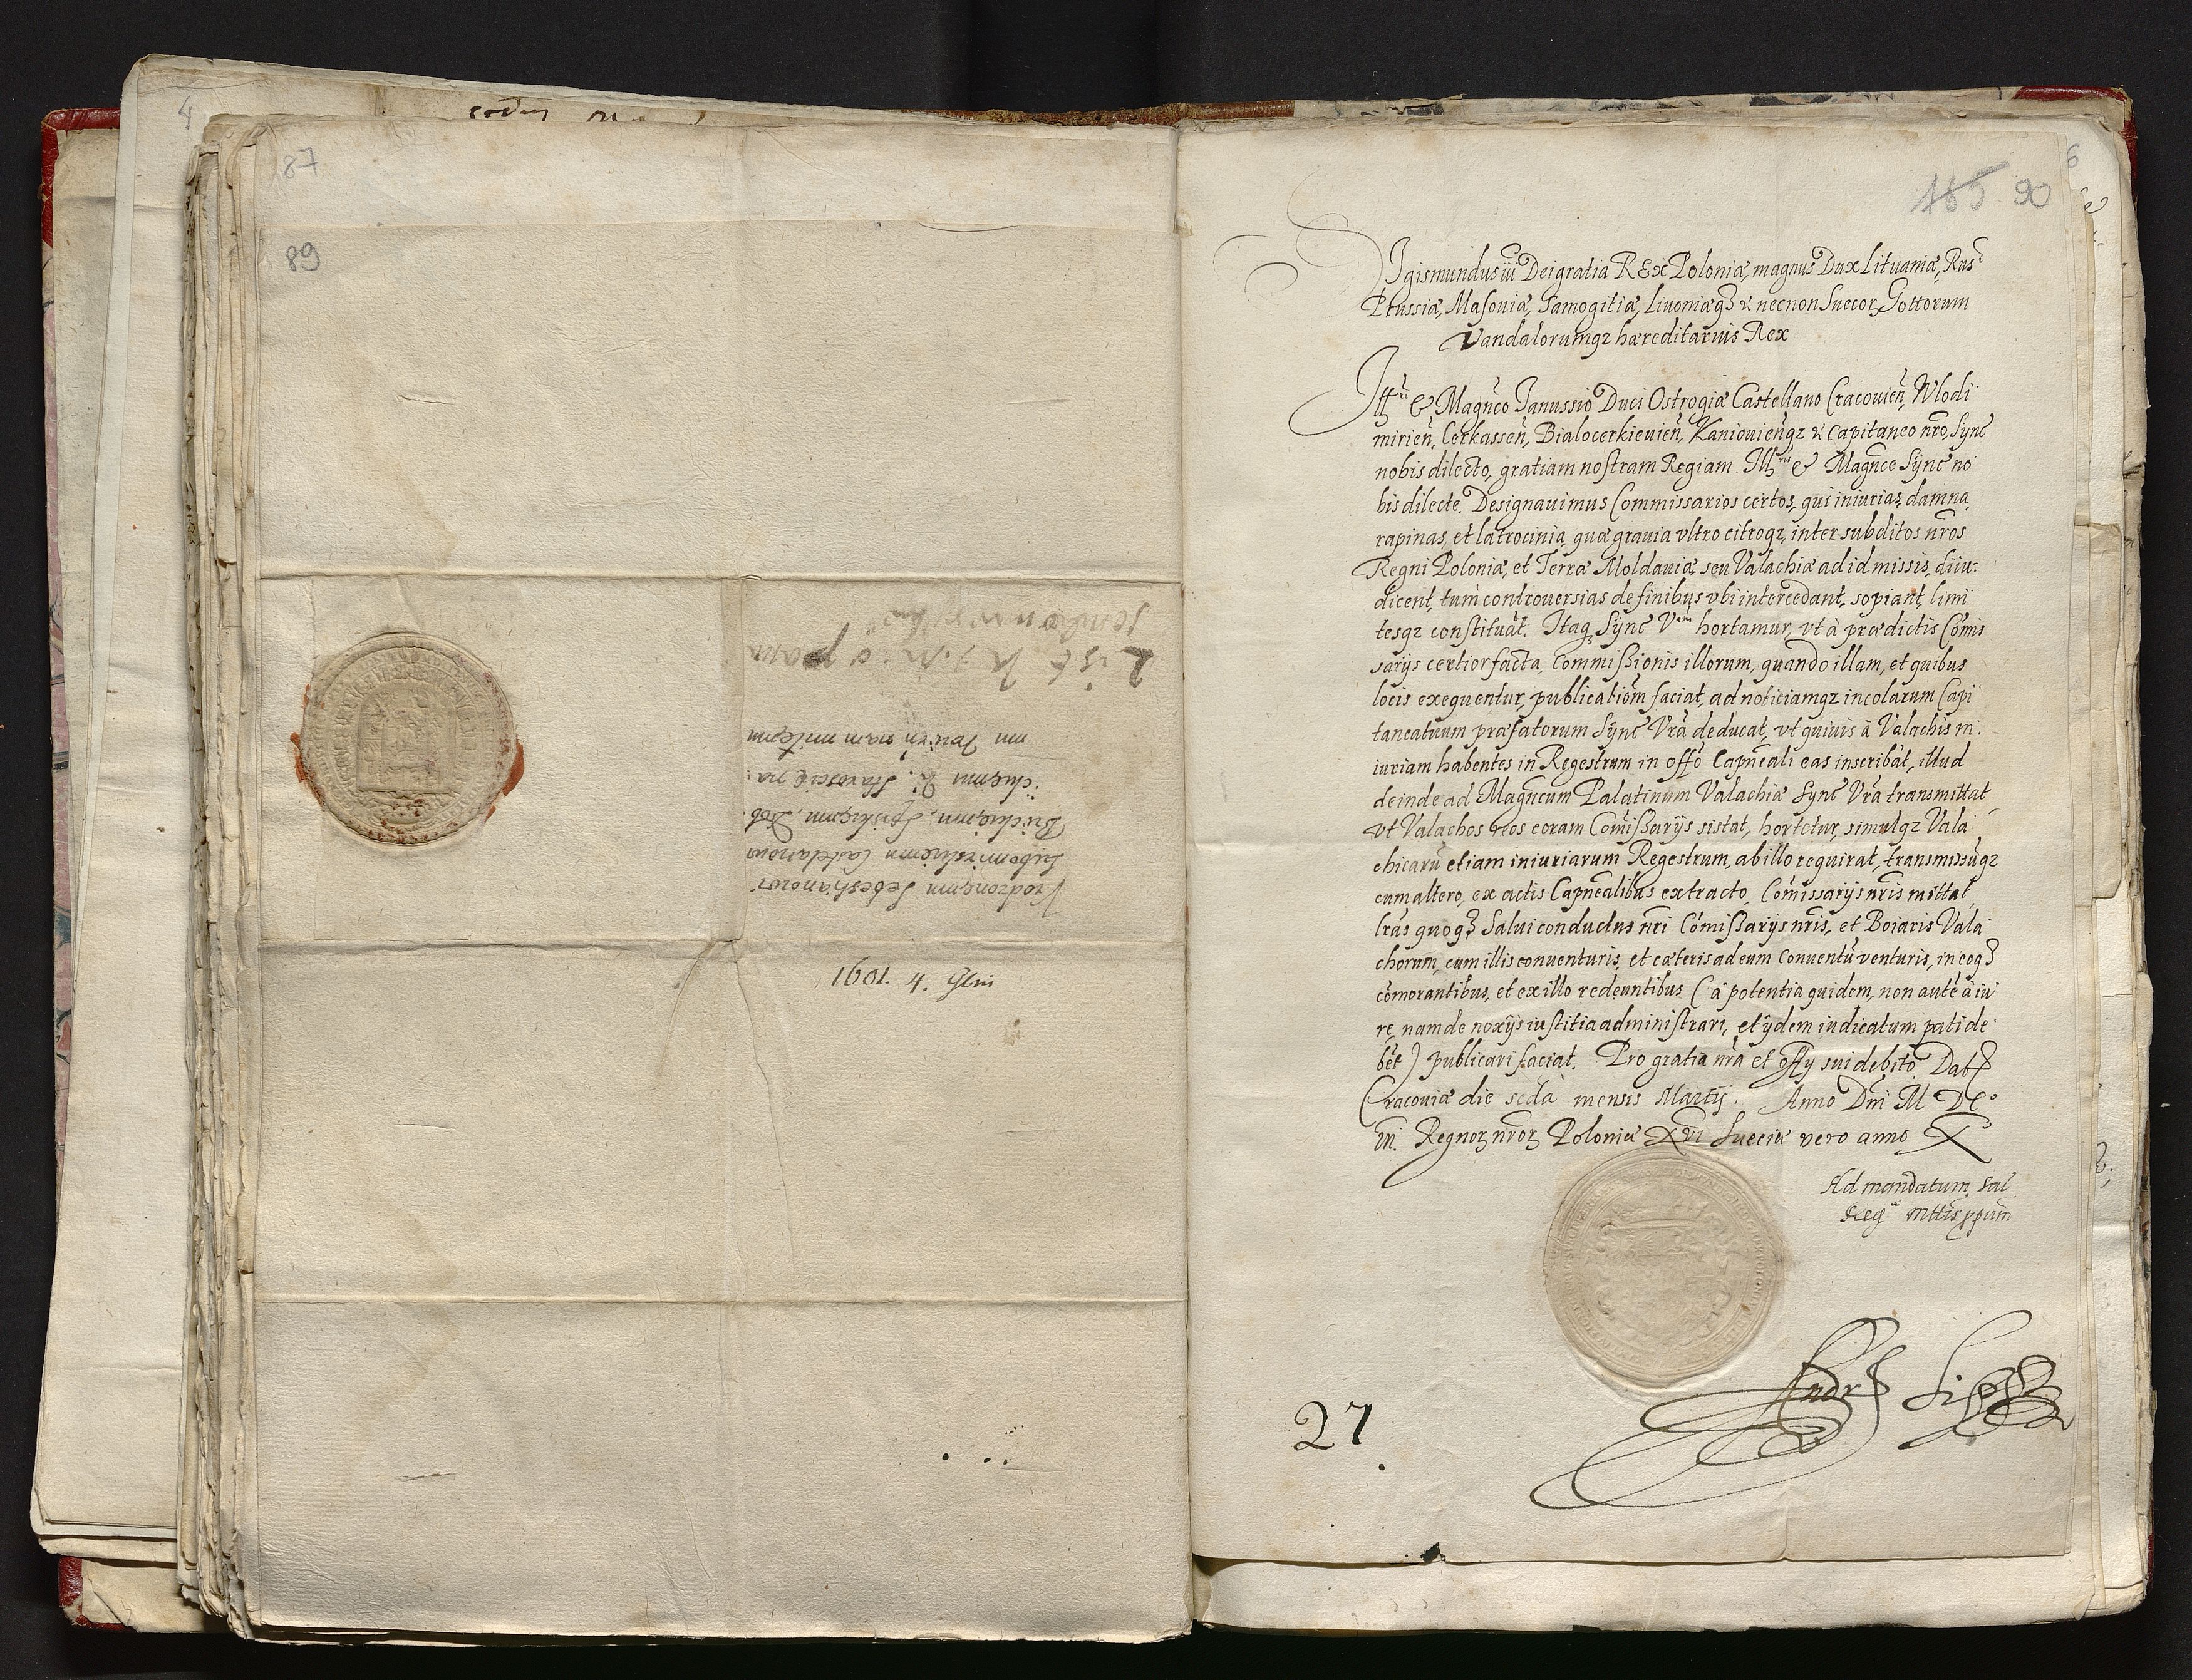 codem
4
87
89
List K. J. M. o pana
Urodzonęmu Sebestianowi
Lubomirskięmu Castelanowi
Bieckięmu, Spiskięmu, Dob.
ckięmu &. Staroscię na:
mu
miłęmu
1601. 4. Glin
165 90
6
Sigismundus iii Dei gratia REx Poloniæ, magnus Dux Lituaniæ, Rus:
Prussiæ, Masouiæ, Samogitiæ, Liuoniæqz & necnon Suecorz Gottorum
Vandalorumqz hæreditarius Rex
Illri & Magnco Ianussio Duci Ostrogiæ Castellano Cracouien, Wlodi
mirien, Cerkassen, Bialocerkieuien, Kaniouienqz & Capitaneo nro, Sync
nobis dilecto, gratiam nostram Regiam. Illris & Magnce Sync no
bis dilecte. Designauimus Commissarios certos, qui iniurias, damna,
rapinas, et latrocinia, quæ grauia vltro citroqz, inter subditos nros
Regni Poloniæ, et Terræ Moldauiæ seu Valachiæ ad id missis, diiu:
dicent, tum controuersias de finibus vbi intercedant, sopiant, limi
tesqz constituat. Itaqz Sync Vram hortamur, vt à prædictis Comis
sarijs certior facta, Commissionis illorum, quando illam, et quibus
locis exequentur, publicationem faciat, ad noticiamqz incolarum Capi
taneatuum præfatorum Sync Vra deducat, vt quiuis à Valachis in:
iuriam habentes in Regestrum in offo Capneali eas inscribat, illud
deinde ad Magncum Palatinum Valachiæ Sync Vra transmittat,
vt Valachos reos coram Comissarijs sistat, hortetur, simulqz Vala
chicaru etiam iniuriarum Regestrum, ab illo requirat, transmissuqz
cum altero, ex actis Capnealibus extracto, Comissarijs nris mittat,
lras quoqz Salui conductus nri Comissarijs nris, et Boiaris Vala
chorum, cum illis conuenturis, et cæteris ad eum conuentu venturis, in eoqz
comorantibus, et ex illo redeuntibus (à potentia quidem, non aute à iu
re, nam de noxijs iustitia administrari, et ijdem iudicatum pati de
bet) publicari faciat. Pro gratia nra et offy sui debito. Dat
Cracouiæ die scda mensis Martij. Anno Dni M DC°
iii. Regnorz nrorz Poloniæ XVI Sueciæ vero anno X
Ad mandatum Sac
Regæ Mttis ppum
Andr Lipski
27.